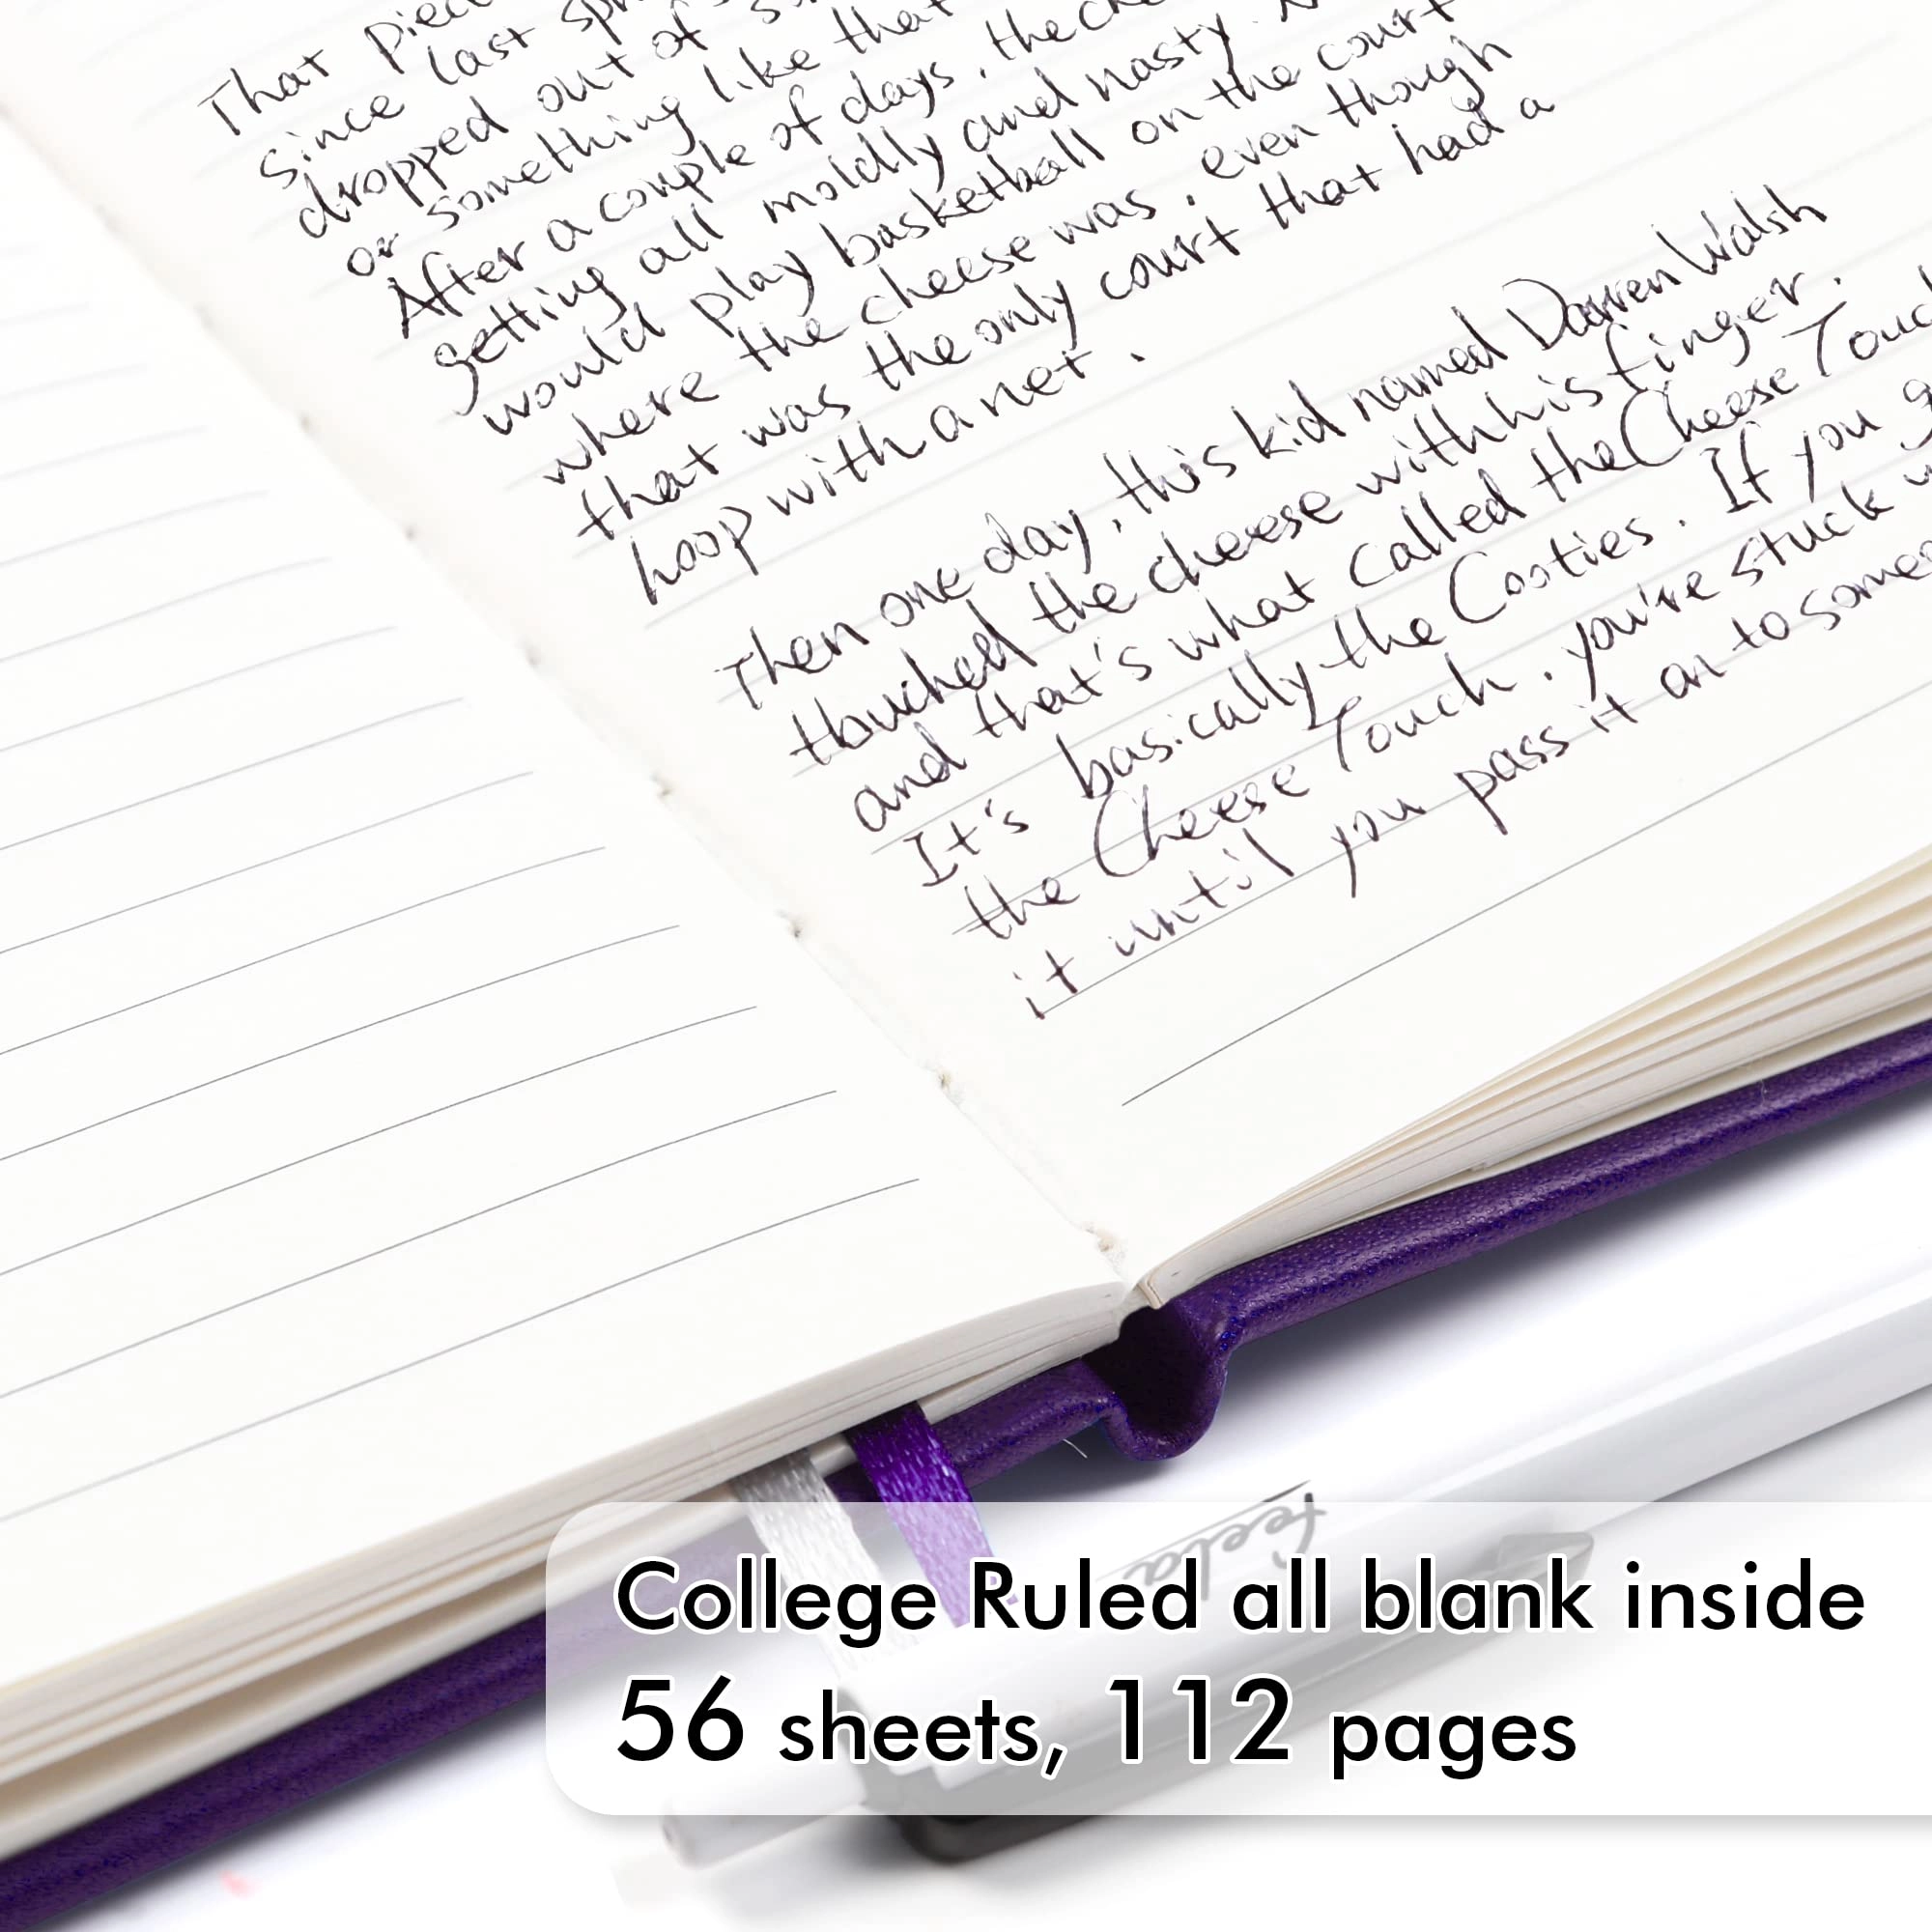 That piec
since last spr
dropped out of s
or something like that
After a couple of days, the che
getting all moldly and nasty. N
would play basketball on the court
where the cheese was, even though
that was the only court that had a
hoop with a net.
Then one day, this kid named Darren Walsh
touched the cheese with his finger.
and that's what called the Cheese Touc
It's basically the Cooties. If you g
the Cheese Touch, you're stuck w
it until you pass it on to someo
feela
College Ruled all blank inside
56 sheets, 112 pages